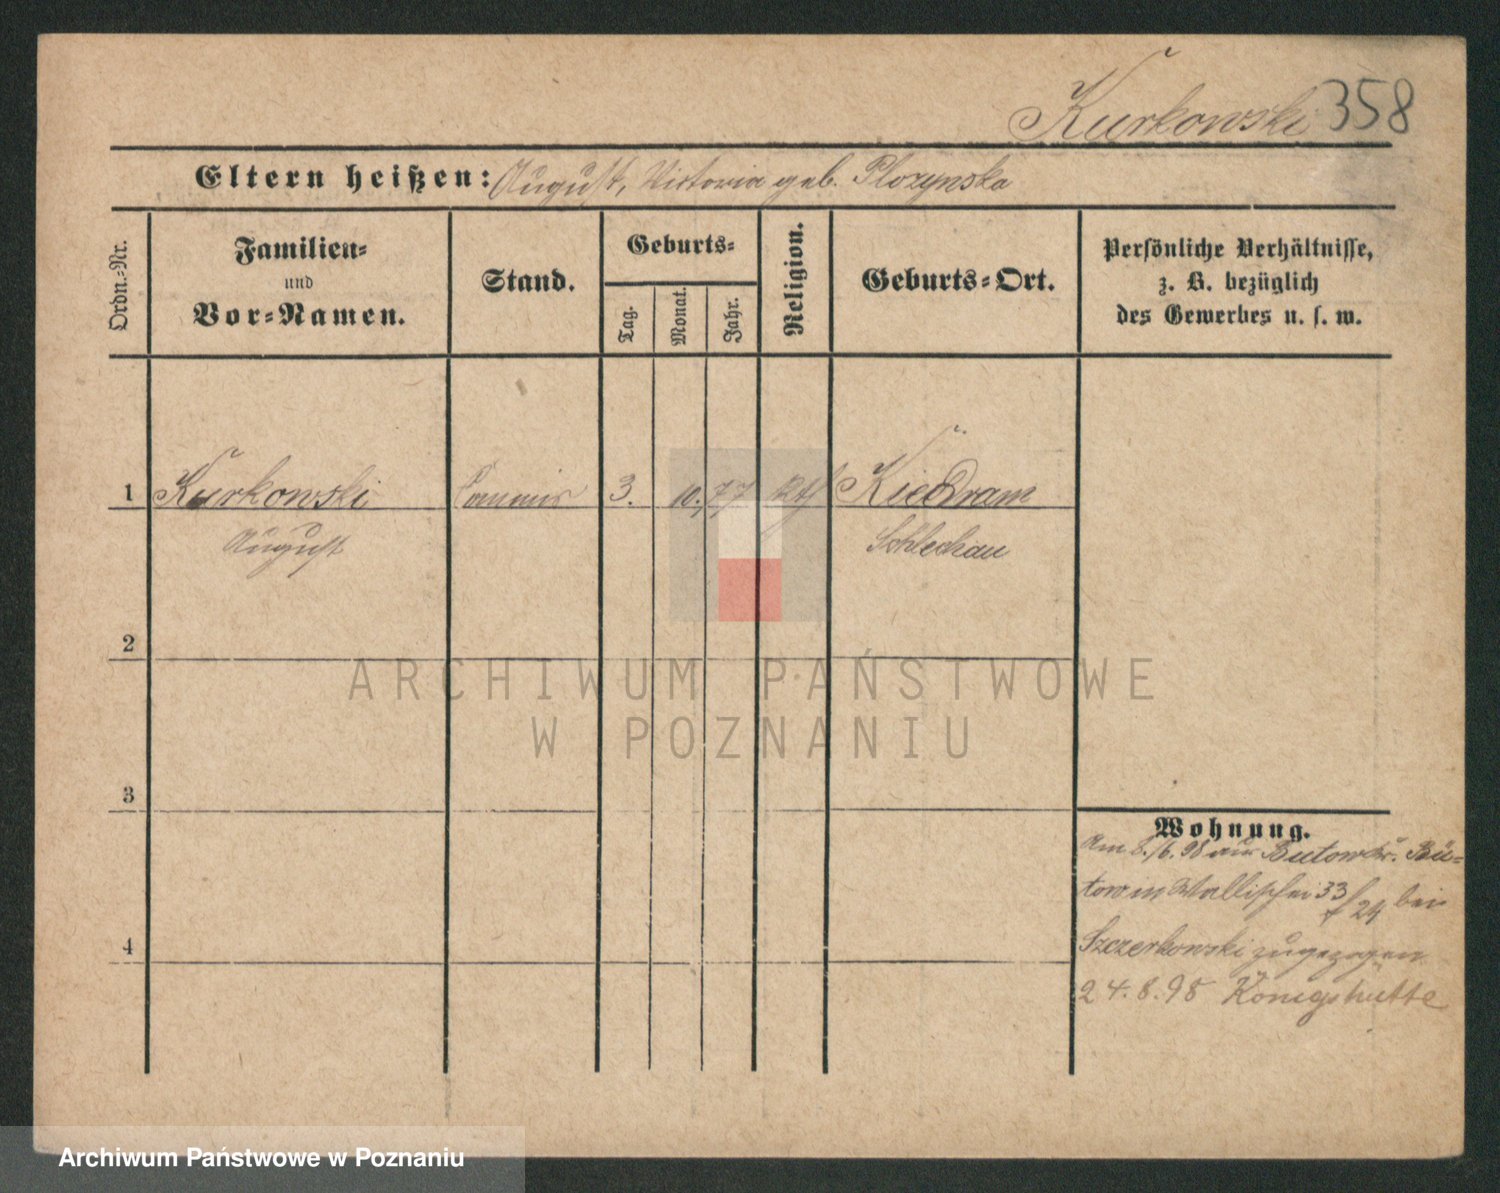 Kurkowski 358
Eltern heißen: August, Victoria geb. Plozynska
Ordn.-Nr.
Familien-
und
Vor-Namen.
Stand.
Geburts-
Tag.
Monat.
Jahr.
Religion.
Geburts-Ort.
Persönliche Verhältnisse,
z. B. bezüglich
des Gewerbes u. s. w.
1 Kurkowski Commis 3. 10. 77 Kth Kiedram
August Schlochau
2
3
4
Wohnung.
Am 8./6. 98 aus Butow Kr. Bü-
tow in Wallischei 33 bei
Szczerkowski zugezogen
24.8.98 Königshütte
ARCHIWUM PAŃSTWOWE
W POZNANIU
Archiwum Państwowe w Poznaniu